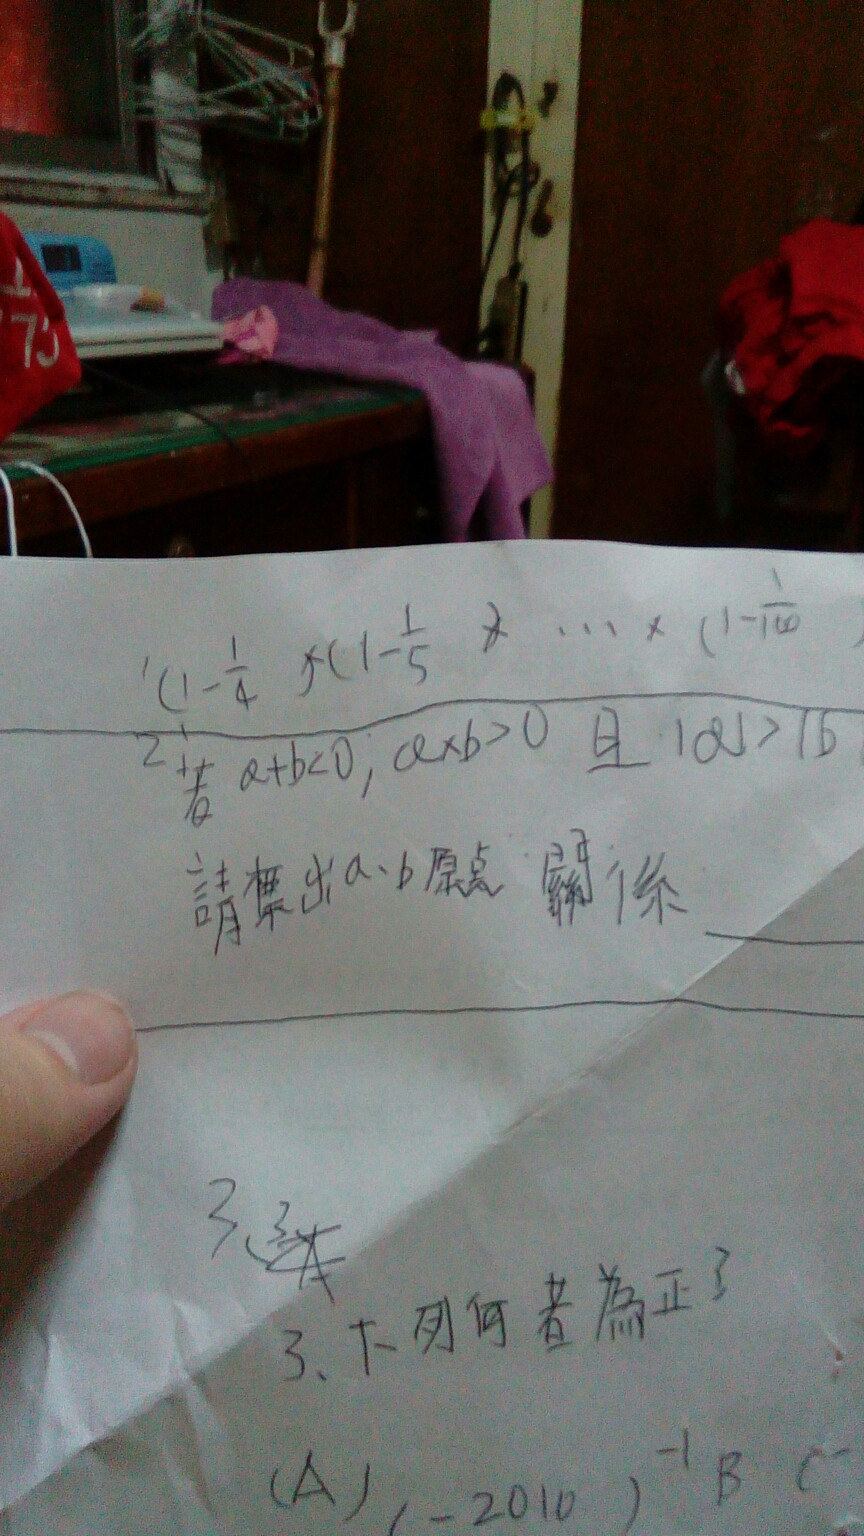 1 (1-1/4)×(1-1/5)×…×(1-1/100)
2 若a+b<0, a×b>0 且 |a|>|b
請標出a、b原点 關係
3
3、下列何者為正?
(A) (-2010)^-1 B (-